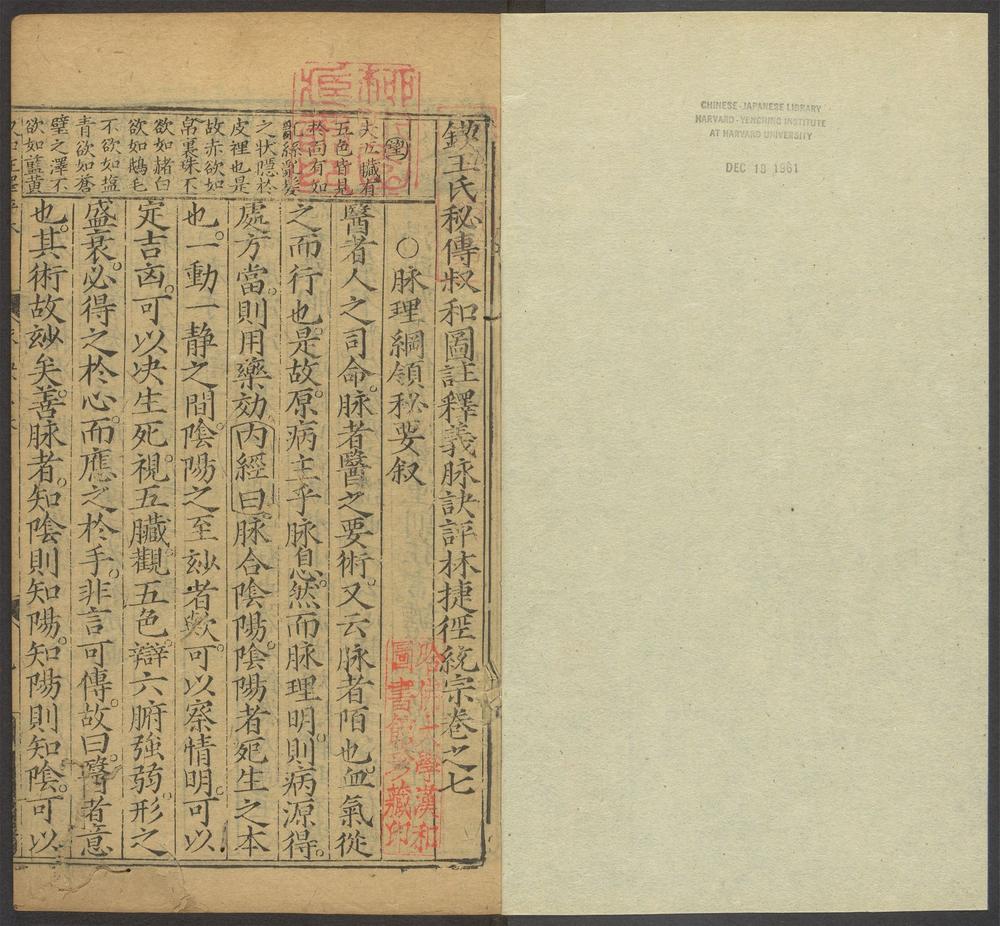 CHINESE-JAPANESE LIBRARY
HARVARD-YENCHING INSTITUTE
AT HARVARD UNIVERSITY
DEC 18 1961
鍥王氏秘傳叔和圖註釋義脉訣評林捷徑統宗卷之七
○脉理綱領秘要叙
醫者人之司命。脉者醫之要術。又云脉者陌也。血氣從
之而行也。是故原病主乎脉息。然而脉理明。則病源得。
處方當。則用藥効。内經曰。脉合陰陽。陰陽者死生之本
也。一動一静之間。陰陽之至玅者歟。可以察情明。可以
定吉凶。可以决生死。視五臟觀五色。辯六腑強弱。形之
盛衰。必得之於心。而應之於手。非言可傳。故曰。醫者意
也。其術故玅矣。善脉者。知陰則知陽。知陽則知陰。可以
夫五臟有
五色皆見
於面有如
絲亂髪
之状隱於
皮裡也是
故赤欲如
帛裹珠不
欲如赭白
欲如鵝毛
不欲如塩
青欲如蒼
璧之澤不
欲如藍黄
哈佛大學漢和
圖書館珍藏印